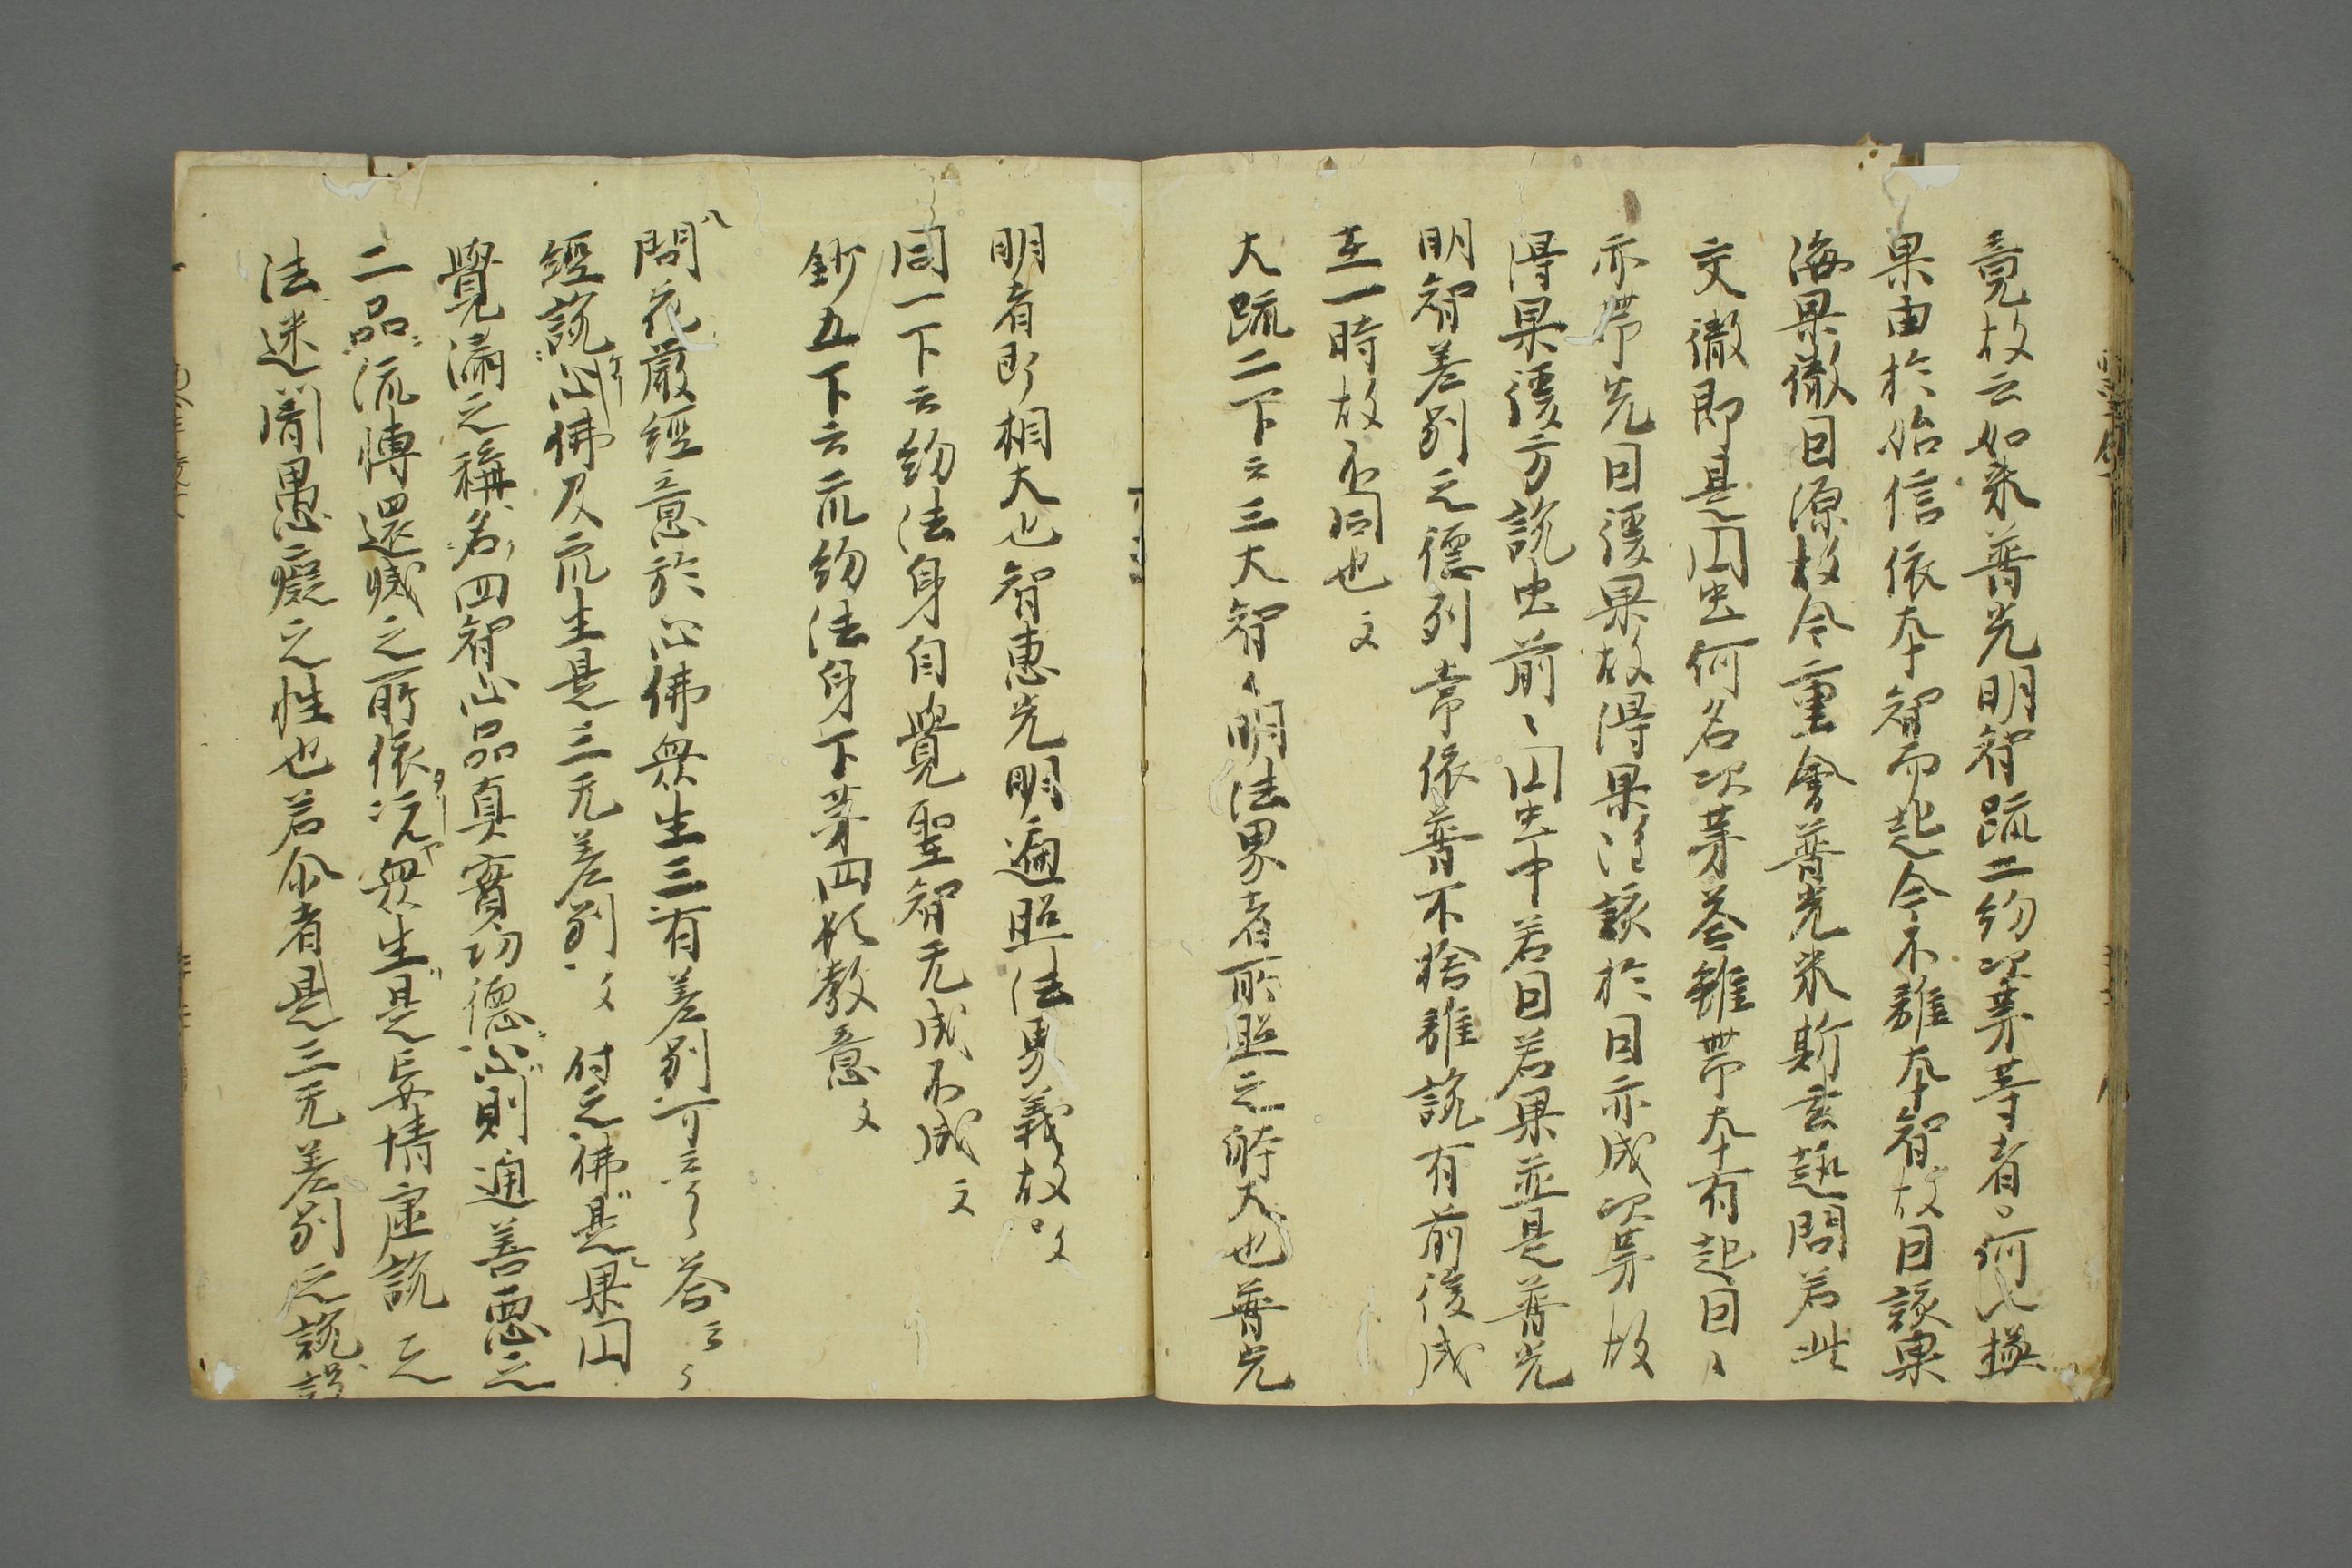 竟故云如来普光明智疏二約次第等者。何以遂
果由於始信依本智而起今不離本智故因該果
海果徹因源故今重會普光来斯玄趣問若此
交徹即是円虫何名次第答雖帯本有起因ヽ
亦帯先因後果故得果注該於因亦成次第故
得果後方説虫前ヽ円虫中若因若果並是普光
明智差別之徳列常依普不捨離説有前後成
在一時故不同也文
大疏二下云三大智ヽ明法界者所照之体大也普光
明者即相大也智恵光明遍照法界義故。文
同一下云約法身自覺聖智无成不成文
鈔五下云二爪約法身下第四状教意文
問花嚴經意於心佛衆生三有差別可云乎答云々
經説心佛及衆生是三无差別文付之佛是果円
覺滿之稱名四智心品真實功徳心則通善悪之
二品流轉還滅之所依況衆生是妄情虚説之
法迷闇愚癡之性也若尒者是三无差別之説